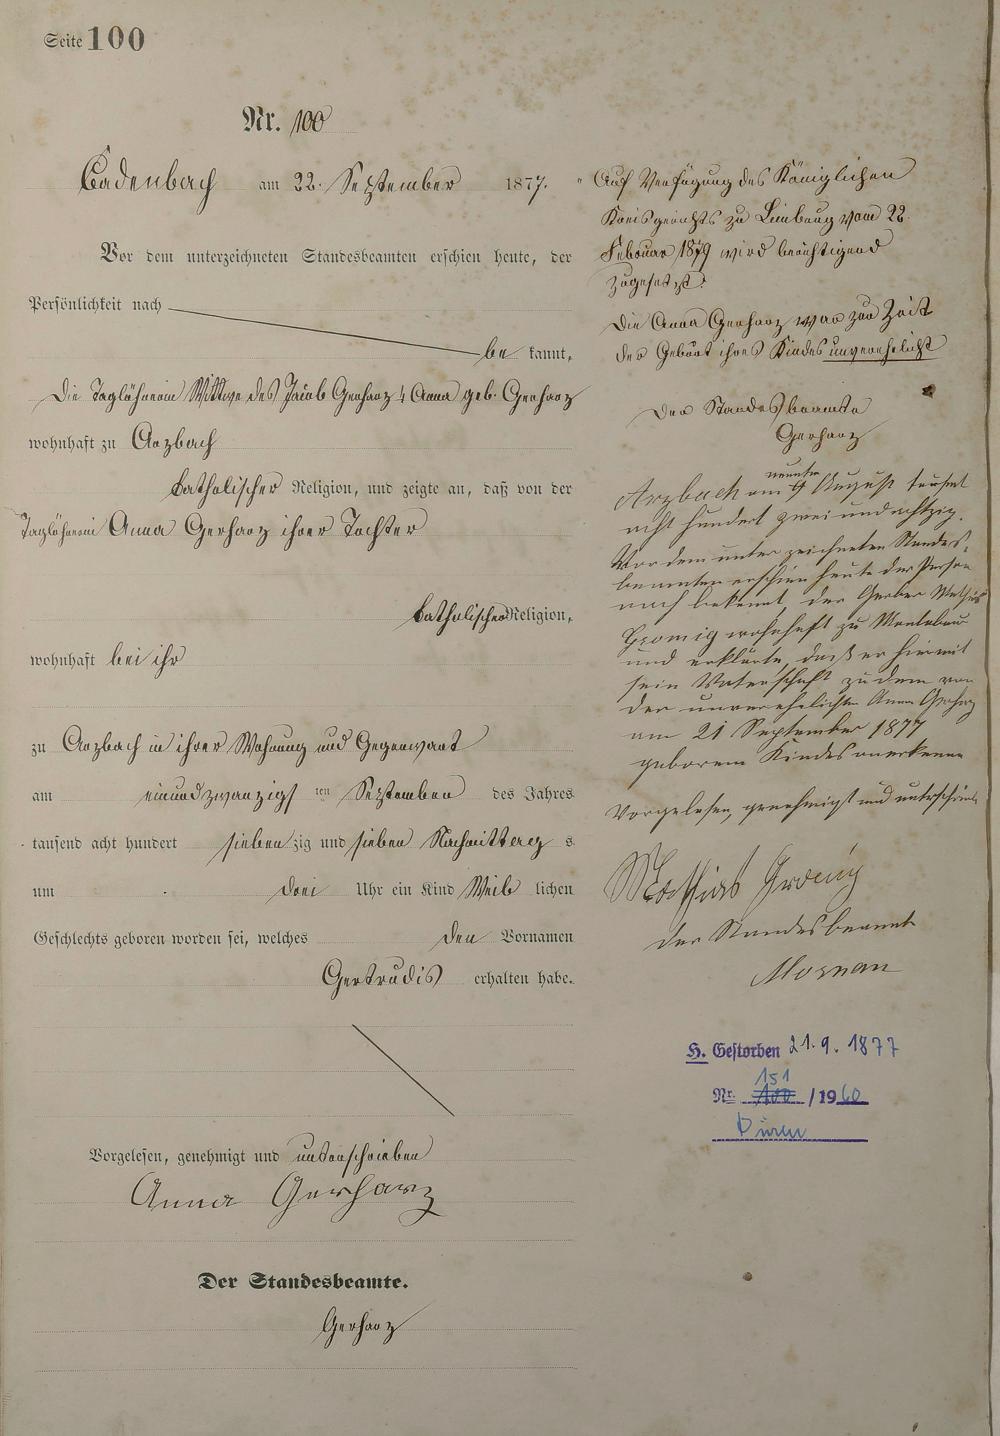 Seite 100
Nr. 100
Cadenbach am 22. September 1877.
Vor dem unterzeichneten Standesbeamten erschien heute, der
Persönlichkeit nach
be kannt,
Die Taglöhnerin Wittwe des Jacob Gerharz Anna geb. Gerharz
wohnhaft zu Arzbach
katholischer Religion, und zeigte an, daß von der
Taglöhnerin Anna Gerharz ihrer Tochter
katholischer Religion,
wohnhaft bei ihr
zu Arzbach in ihrer Wohnung und Gegenwart
am einundzwanzigs ten September des Jahres
tausend acht hundert sieben zig und sieben Nachmittag s
um drei Uhr ein Kind Weib lichen
Geschlechts geboren worden sei, welches den Vornamen
Gertrudis erhalten habe.
Vorgelesen, genehmigt und unterschrieben
Anna Gerharz
Der Standesbeamte.
Gerharz
Auf Verfügung des Königlichen
Kreisgerichts zu Limburg vom 22.
Februar 1879 wird berichtigend
zugesetzt:
Die Anna Gerharz war zur Zeit
der Geburt ihres Kindes unverehelicht
Der Standesbeamte
Gerharz
Arzbach am neunten 9 August tausend
acht hundert zwei und achtzig.
Vor dem unterzeichneten Standes-
beamten erschien heute der Person
nach bekannt, der Gerber Mathias
wohnhaft zu Montabaur
und erklärte, daß er hiermit
sein Vaterschaft zu dem von
der unverehelichten Anna Gerharz
am 21 September 1877
geborenen Kindes anerkenne
Vorgelesen, genehmigt und unterschrieben
Mathias
der Standesbeamte
H. Gestorben 21.9.1877
151
Nr. 100 /1960
Düren